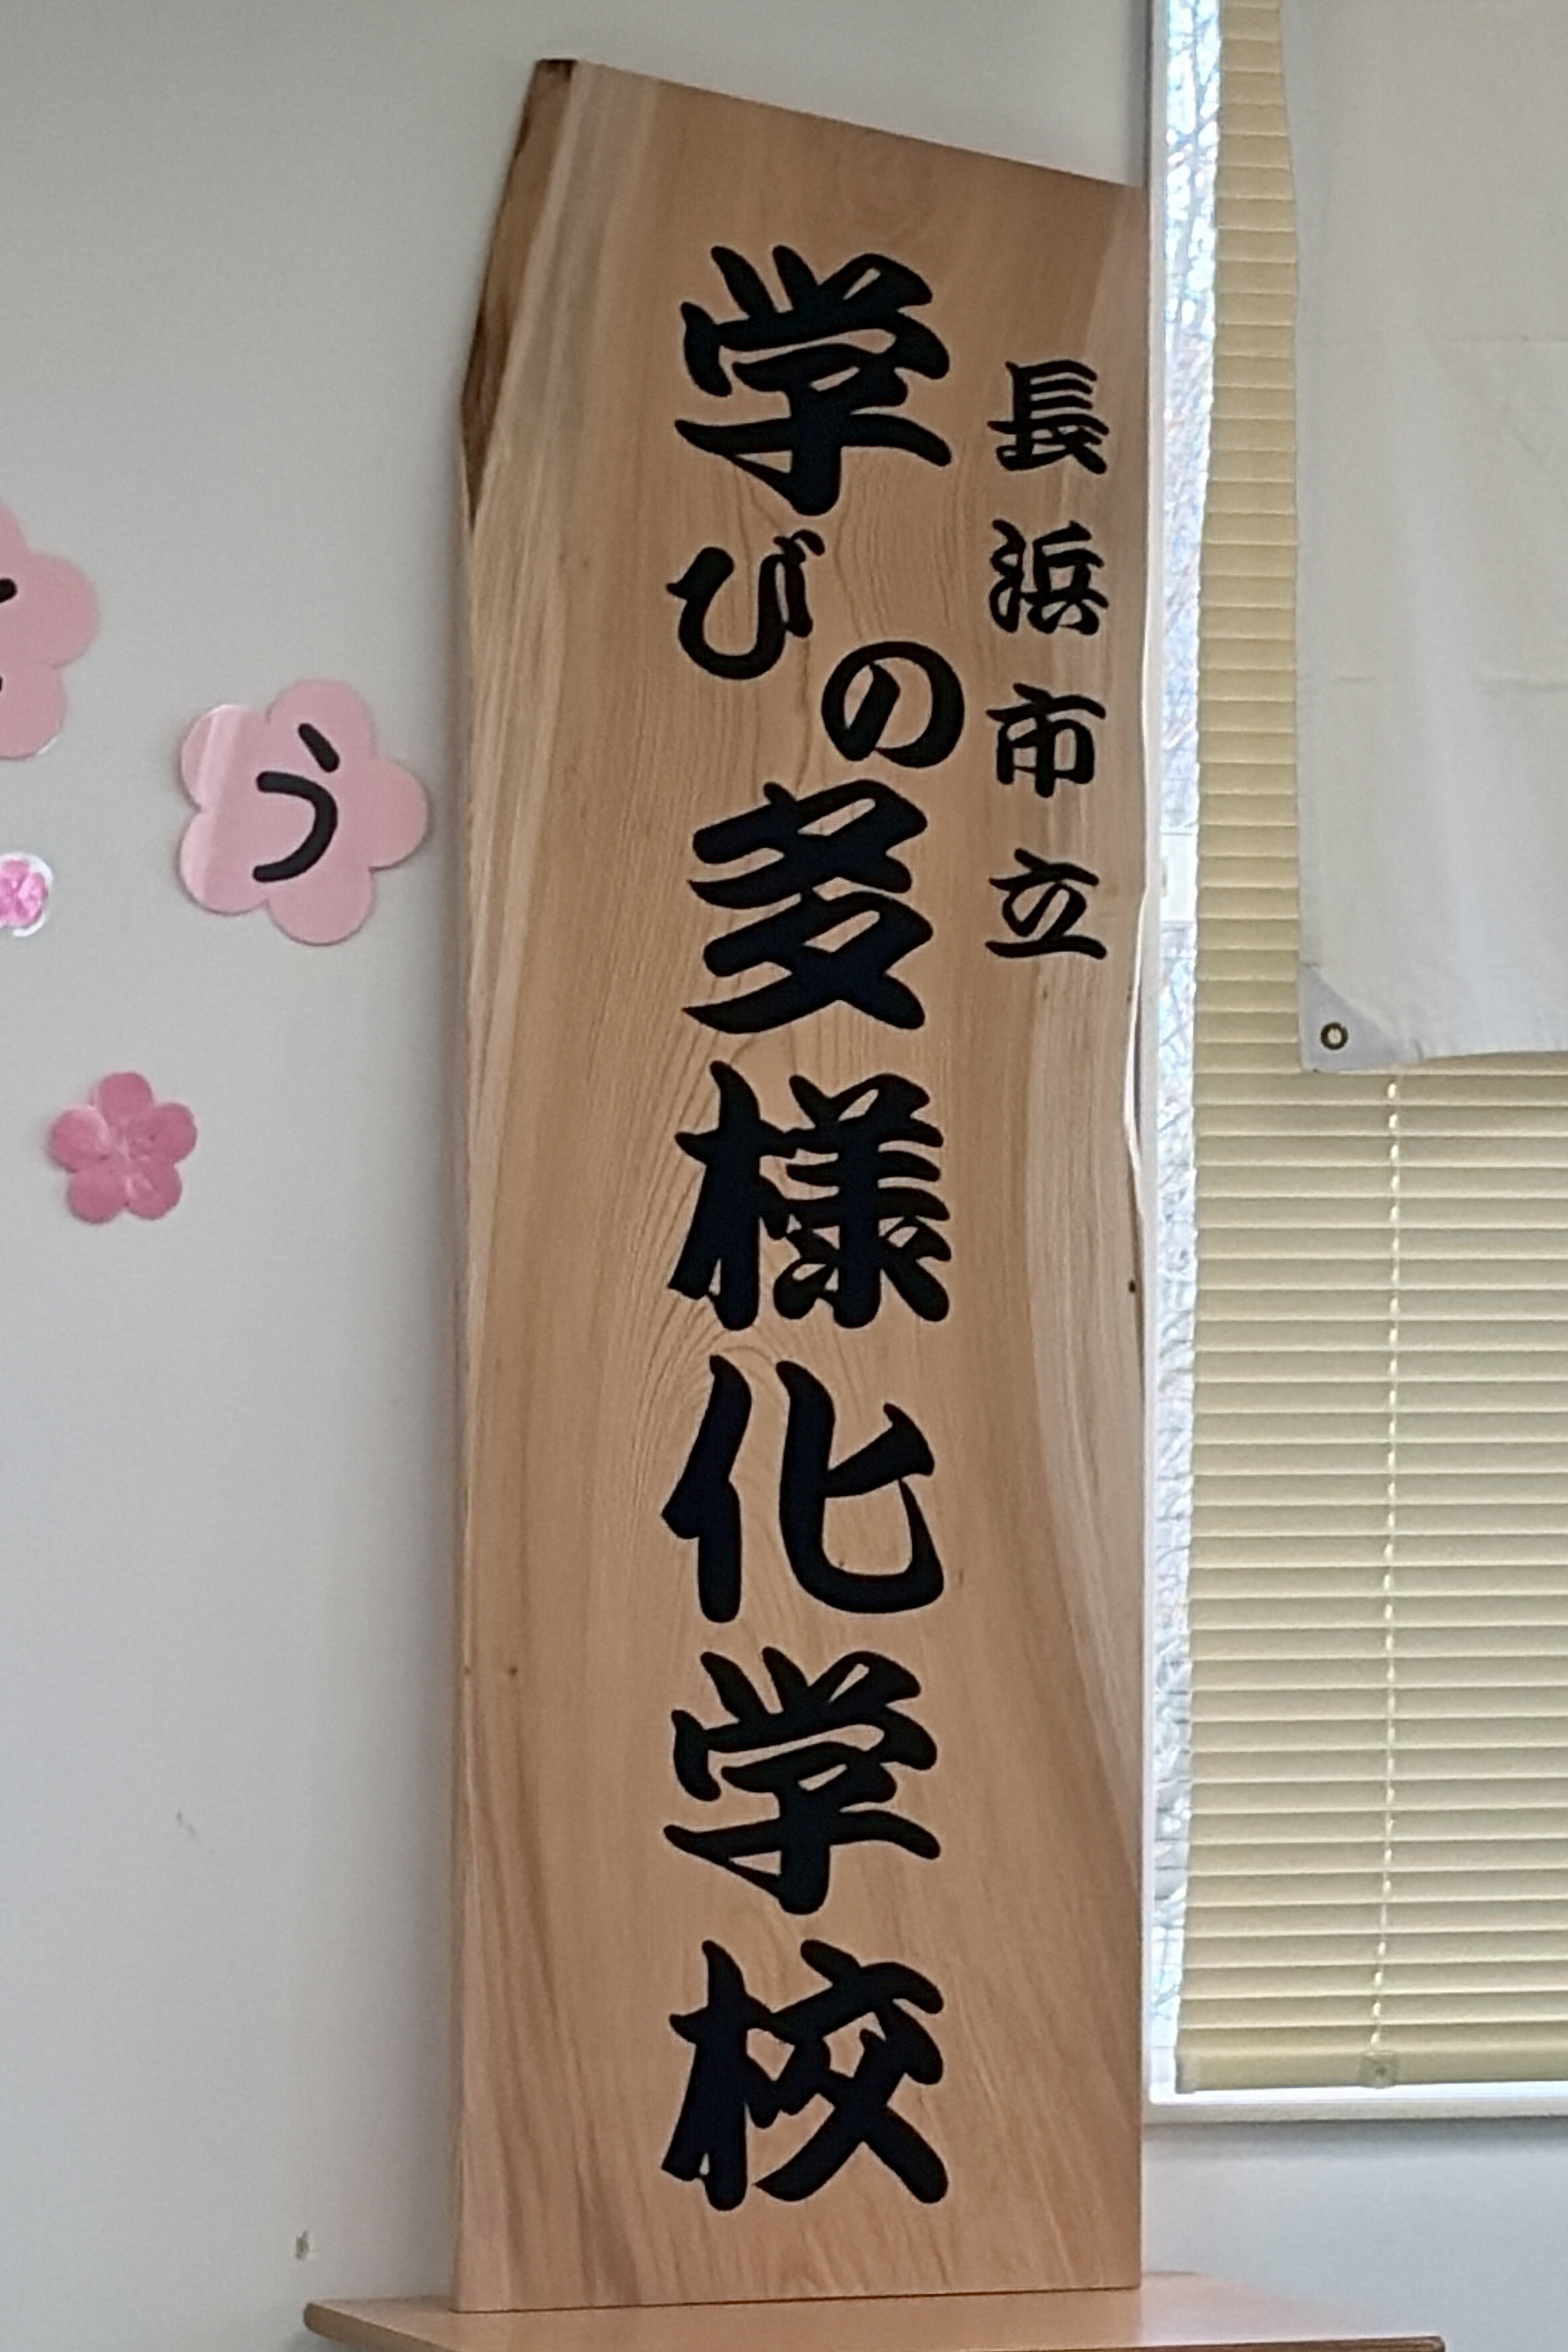 長浜市立
学びの多様化学校
う